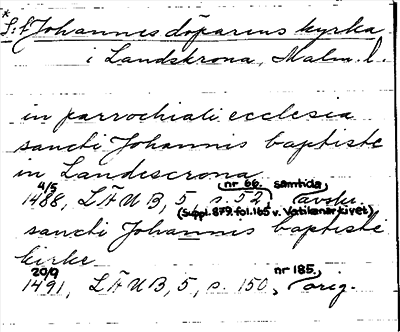 * S:t Johannes döparens kyrka
i Landskrona, Malm. l.
in parrochiali ecclesia
sancti Johannis baptiste
in Landescrona
4/5 nr 66. samtida
1488, LÄUB, 5, s. 52, avskr.
(Suppl. 879. fol. 165 v. Vatikanarkivet)
sancti Johannis baptiste
kirke
20/9 nr 185.
1491, LÄUB, 5, s. 150, orig.